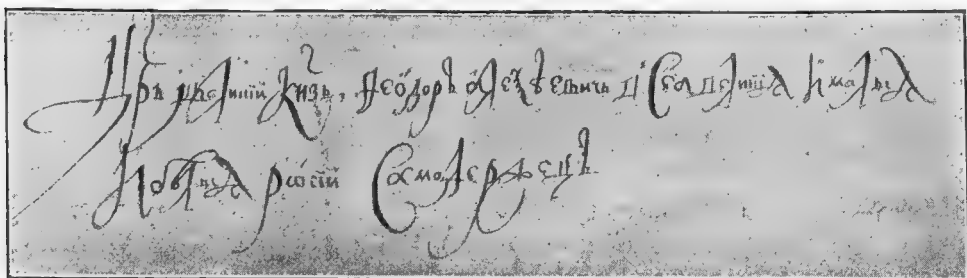 Црь ивеликий Кнзь, Ѳеодоръ Алеѯѣевичь Всеа великиа ималыа
ибѣлыа росиӣ Самодержецъ